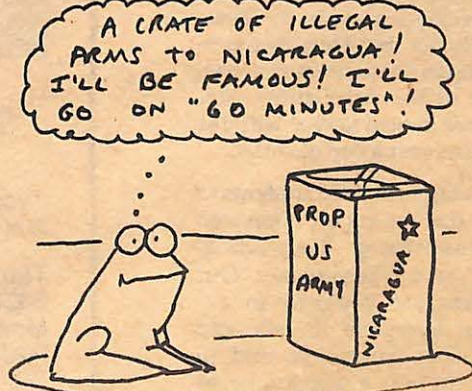 A CRATE OF ILLEGAL
ARMS TO NICARAGUA!
I'LL BE FAMOUS! I'LL
GO ON "60 MINUTES"!
PROP.
US
ARMY
NICARAGUA